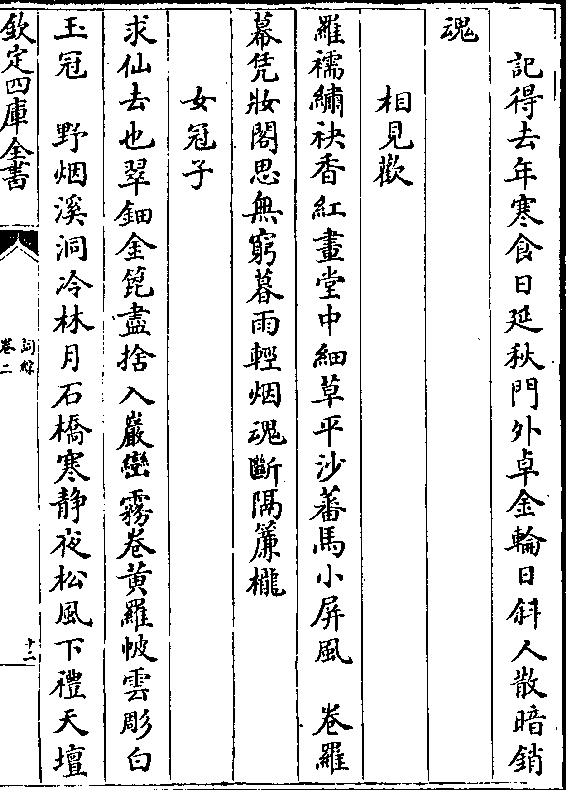 記得去年寒食日延秋門外卓金輪日斜人散暗銷
魂
相見歡
羅襦繡袂香紅畫堂中細草平沙蕃馬小屏風　卷羅
幕凭妝閣思無窮暮雨輕烟魂斷隔簾櫳
女冠子
求仙去也翠鈿金篦盡捨入巖巒霧卷黄羅帔雲彫白
玉冠　野烟溪洞冷林月石橋寒静夜松風下禮天壇
欽定四庫全書
詞綜
卷二
十二